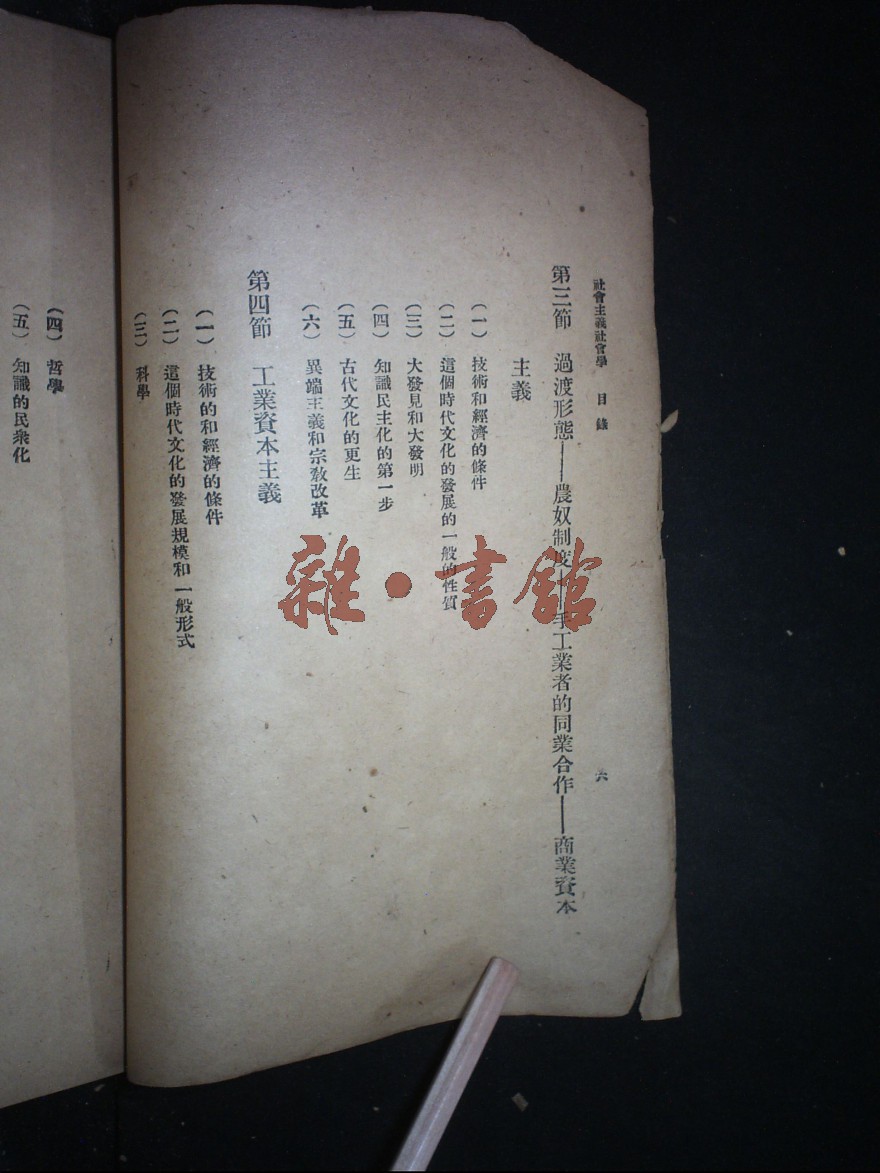 社會主義社會學　目錄　六
第三節　過渡形態——農奴制度——手工業者的同業合作——商業資本
主義
（一）　技術和經濟的條件
（二）　這個時代文化的發展的一般的性質
（三）　大發見和大發明
（四）　知識民主化的第一步
（五）　古代文化的更生
（六）　異端主義和宗教改革
第四節　工業資本主義
（一）　技術的和經濟的條件
（二）　這個時代文化的發展規模和一般形式
（三）　科學
（四）　哲學
（五）　知識的民衆化
雜·書館